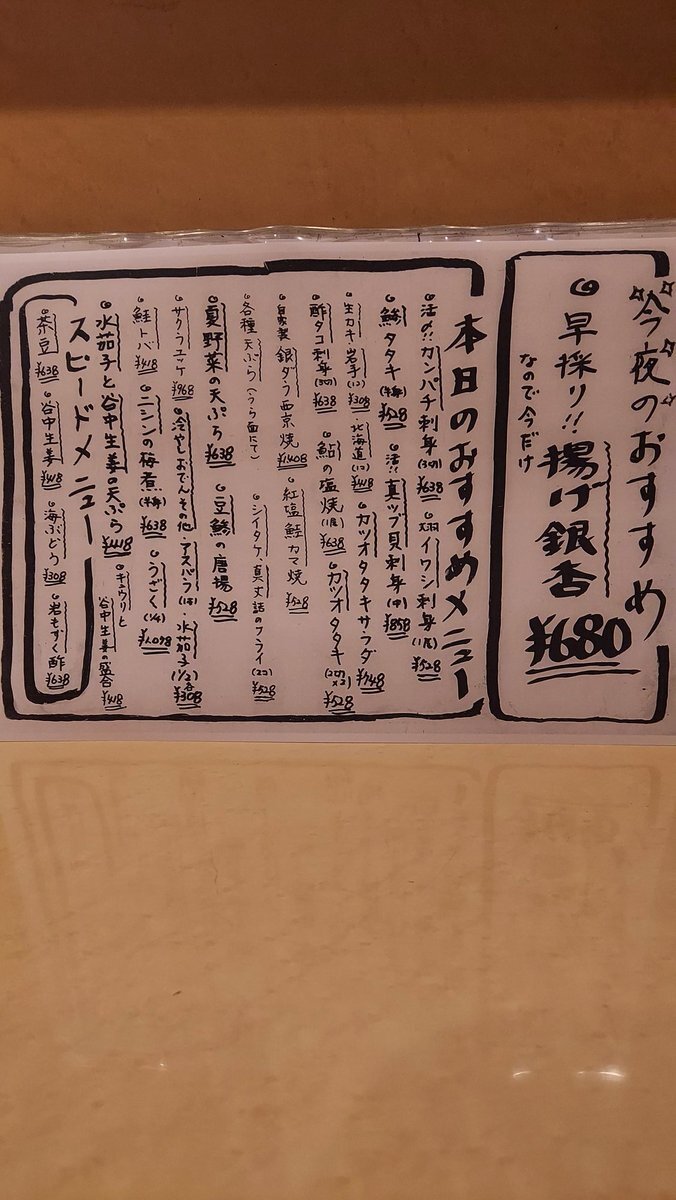 今夜のおすすめ
早採り!! 揚げ銀杏 ¥680
なので今だけ
本日のおすすめメニュー
活〆!! カンパチ刺身(3切)¥638 大羽イワシ刺身(1尾)¥528
鯵タタキ(半身)¥528 活!! 真ツブ貝刺身(中)¥858
生カキ 岩手(1コ)¥308・北海道(1コ)¥418 カツオタタキサラダ ¥748
酢ダコ刺身(3切)¥638 鮎の塩焼(1尾)¥638 カツオタタキ(2切×2)¥528
自家製 銀ダラ西京焼 ¥1,408 紅塩鮭カマ焼 ¥528
各種天ぷら(うら面にて) シイタケ、真丈詰のフライ(2コ)¥528
夏野菜の天ぷら ¥638 豆鯵の唐揚 ¥528
サクラユッケ ¥968 冷やしおでんその他・アスパラ(1本) 水茄子(1/2)各¥308
鮭トバ ¥418 ニシンの梅煮(半身)¥638 うざく(1/4)¥1,078
水茄子と谷中生姜の天ぷら ¥418 キュウリと谷中生姜の盛合 ¥418
スピードメニュー
茶豆 ¥638 谷中生姜 ¥418 海ぶどう ¥308 岩もずく酢 ¥638